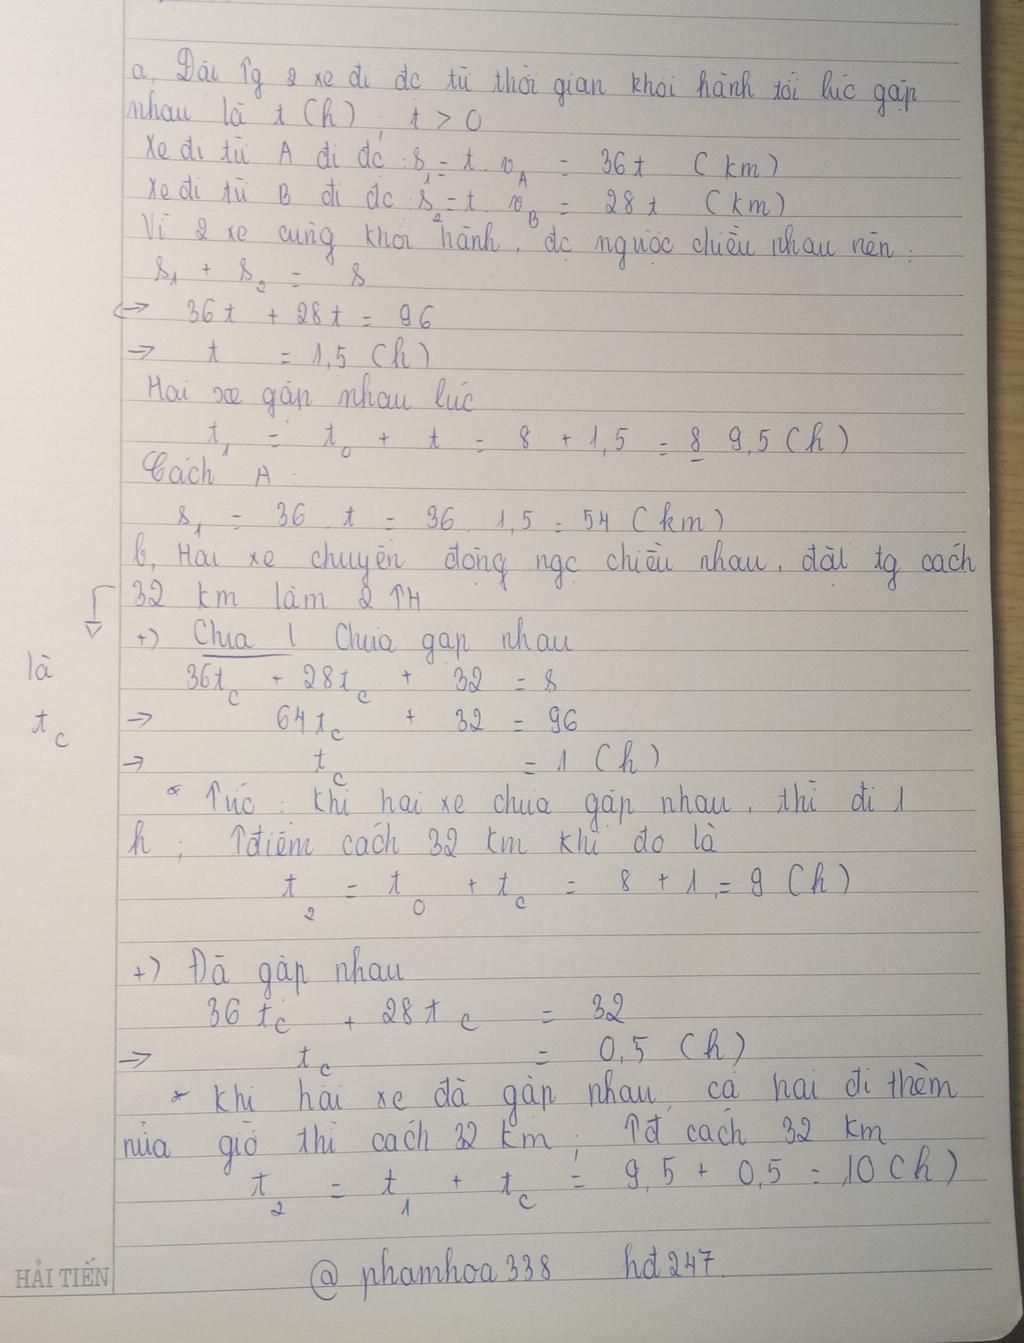 a, Đặt Tg 2 xe đi đc từ thời gian khởi hành tới lúc gặp
nhau là t (h) ; t > 0
Xe đi từ A đi đc : s₁ = t . v_A = 36t (km)
Xe đi từ B đi đc : s₂ = t . v_B = 28t (km)
Vì 2 xe cùng khởi hành, đc ngược chiều nhau nên :
s₁ + s₂ = s
<-> 36t + 28t = 96
-> t = 1,5 (h)
Hai xe gặp nhau lúc
t₁ = t₀ + t = 8 + 1,5 = 8 9,5 (h)
Cách A :
s₁ = 36 . t = 36 . 1,5 = 54 (km)
b, Hai xe chuyển động ngc chiều nhau, đặt tg cách
32 km làm 2 TH
là
t_c
+) Chưa Chưa gặp nhau
36t_c + 28t_c + 32 = s
-> 64t_c + 32 = 96
-> t_c = 1 (h)
* Tức : khi hai xe chưa gặp nhau, thì đi 1
h ; Tđiểm cách 32 km khi đó là
t₂ = t₀ + t_c = 8 + 1 = 9 (h)
+) Đã gặp nhau
36 t_c + 28 t_c = 32
-> t_c = 0,5 (h)
* Khi hai xe đã gặp nhau, cả hai đi thêm
nửa giờ thì cách 32 km ; Tđ cách 32 km
t₂ = t₁ + t_c = 9,5 + 0,5 = 10 (h)
@ phamhoa338 hđ247
HẢI TIẾN